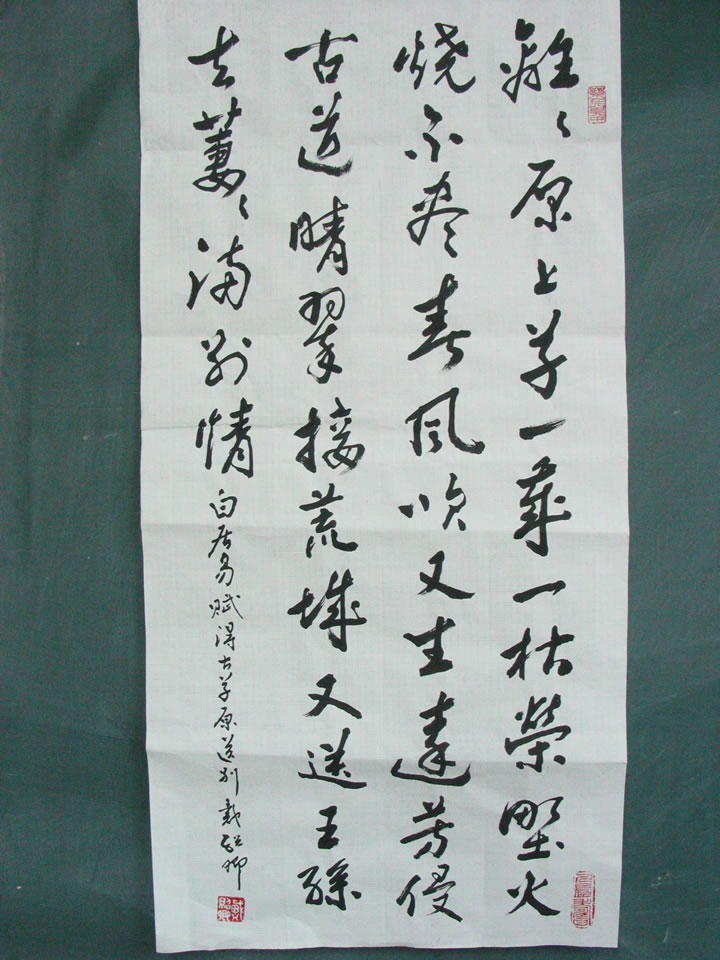 離々原上草一歲一枯榮野火
燒不盡春風吹又生遠芳侵
古道晴翠接荒城又送王孫
去萋々滿別情
白居易賦得古草原送別 戴